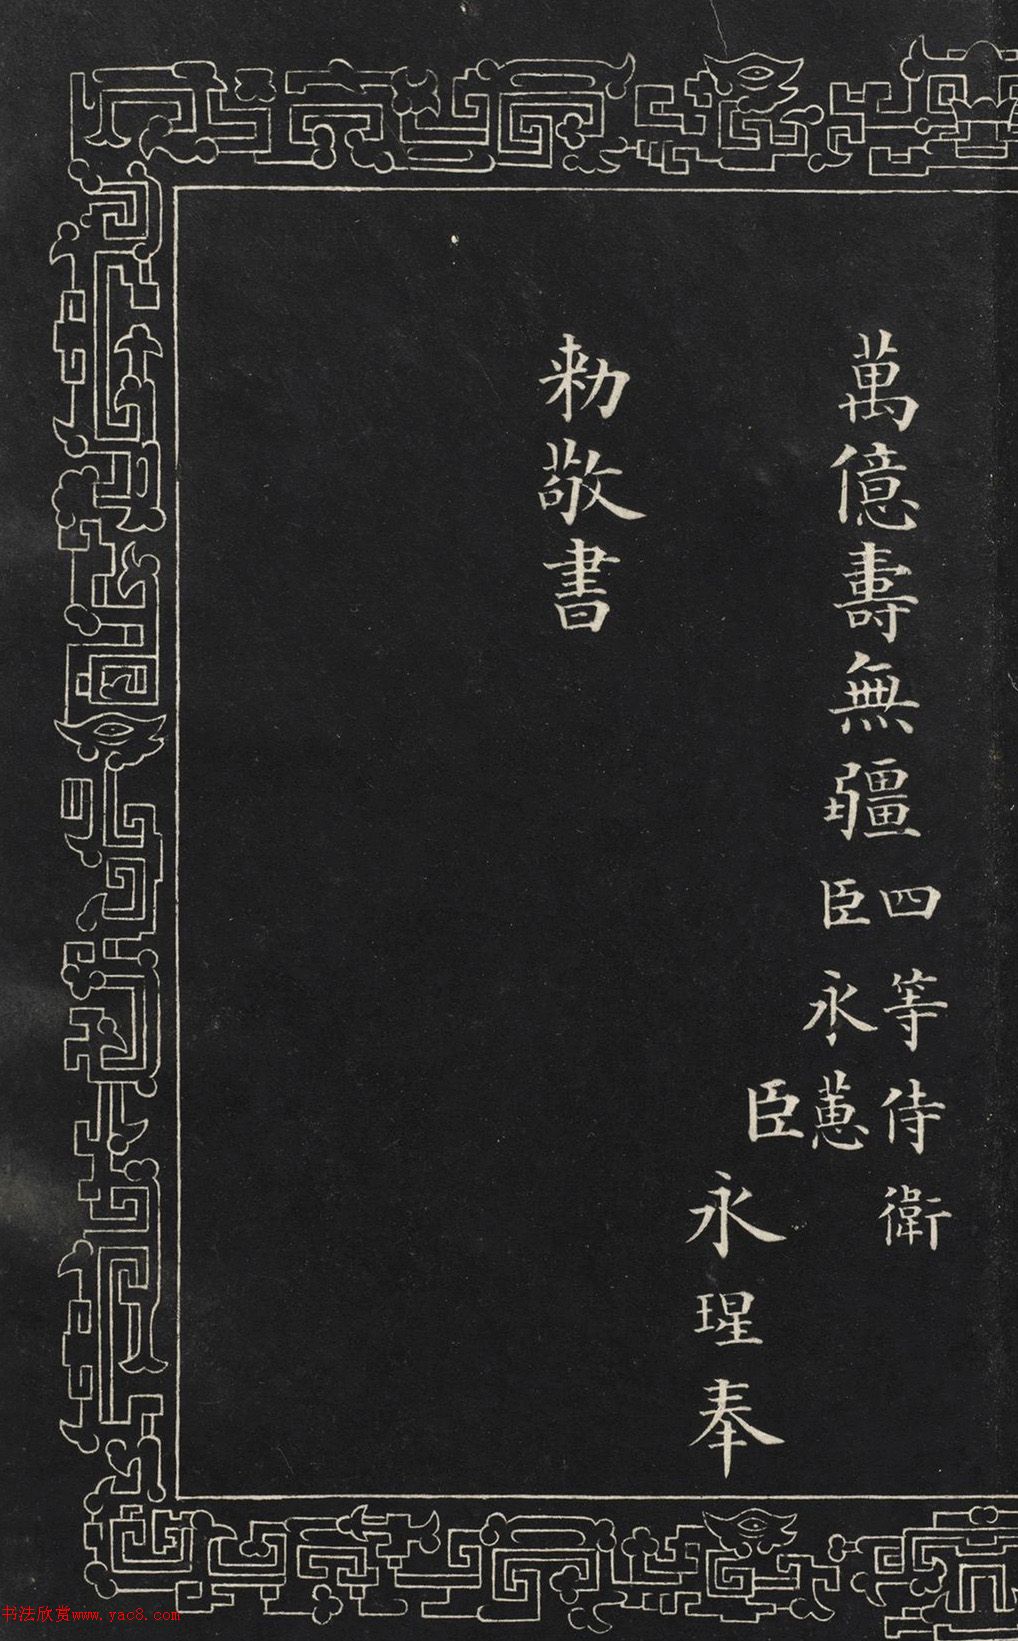 萬億壽無疆四等侍衛
臣永蕙
臣
永瑆奉
勑敬書
书法欣赏www.yac8.com